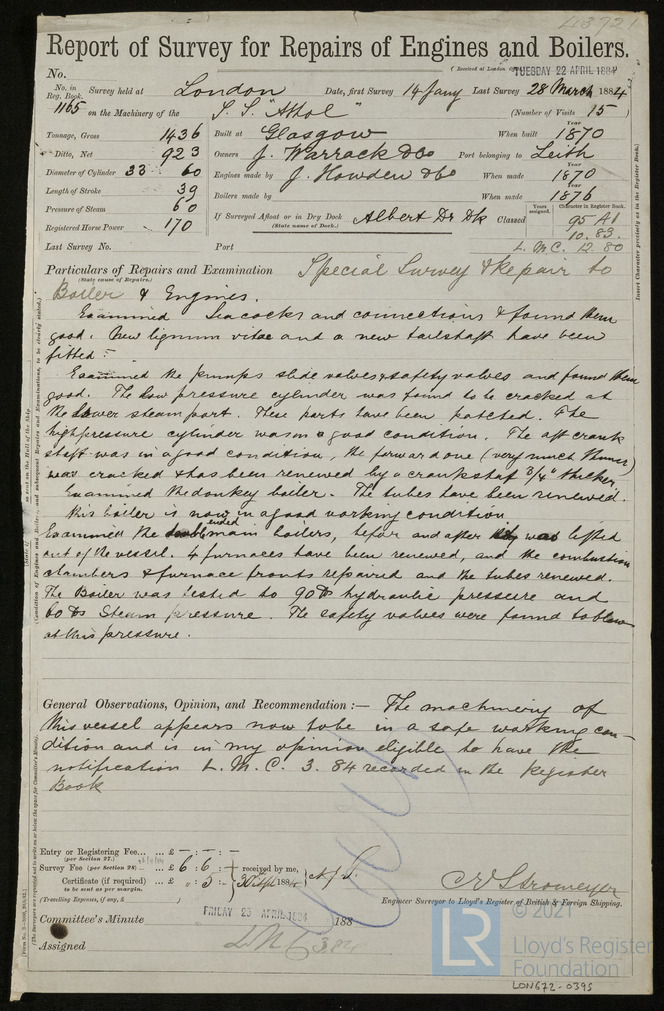 43721
Report of Survey for Repairs of Engines and Boilers.
No. (Received at London TUESDAY 22 APRIL 1884
No. in Reg. Book. Survey held at London Date, first Survey 14 Jany Last Survey 28 March 1884
1165 on the Machinery of the S.S. "Athol" (Number of Visits 15)
Tonnage, Gross 1436 Built at Glasgow When built Year 1870
Ditto, Net 923 Owners J. Warrack & Co Port belonging to Leith
Diameter of Cylinder 33 60 Engines made by J. Howden & Co When made Year 1870
Length of Stroke 39 Boilers made by When made Year 1876
Pressure of Steam 60 If Surveyed Afloat or in Dry Dock Albert Dr Dk Classed Years assigned. Character in Register Book. 95 A1
(State name of Dock.) 10.83.
Registered Horse Power 170
Last Survey No. Port L.M.C. 12 80
Particulars of Repairs and Examination Special Survey & Repair to
(State cause of Repairs.)
Boiler & Engines.
Examined Sea cocks and connections & found them
good. New lignum vitae and a new tailshaft have been
fitted.
Examined the pumps slide valves & safety valves and found them
good. The low pressure cylinder was found to be cracked at
the lower steam port. These parts have been patched. The
high pressure cylinder was in a good condition. The aft crank
shaft was in a good condition, the forward one (very much thinner)
was cracked & has been renewed by a crankshaft 3/4" thicker.
Examined the donkey boiler. The tubes have been renewed.
this boiler is now in a good working condition
Examined the double ended main boilers, before and after they was lifted
out of the vessel. 4 furnaces have been renewed, and the combustion
chambers & furnace fronts repaired and the tubes renewed.
The Boiler was tested to 90 lbs hydraulic pressure and
60 lbs Steam pressure. The safety valves were found to blow
at this pressure.
General Observations, Opinion, and Recommendation :— The machinery of
this vessel appears now to be in a safe working con-
dition and is in my opinion eligible to have the
notification L.M.C. 3.84 recorded in the Register
Book
Entry or Registering Fee... ... £ – : – : –
(per Section 27.)
Survey Fee (per Section 28) ... £ 6 : 6 : received by me,
Certificate (if required) ... £ „ : 5 : 30 Apl 1884
to be sent as per margin.
(Travelling Expenses, if any, £ )
C E Stromeyer
Engineer Surveyor to Lloyd's Register of British & Foreign Shipping.
Committee's Minute FRIDAY 25 APRIL 1884 188
Assigned LMC 3.84
© 2021
LR
Lloyd's Register
Foundation
LON672-0395